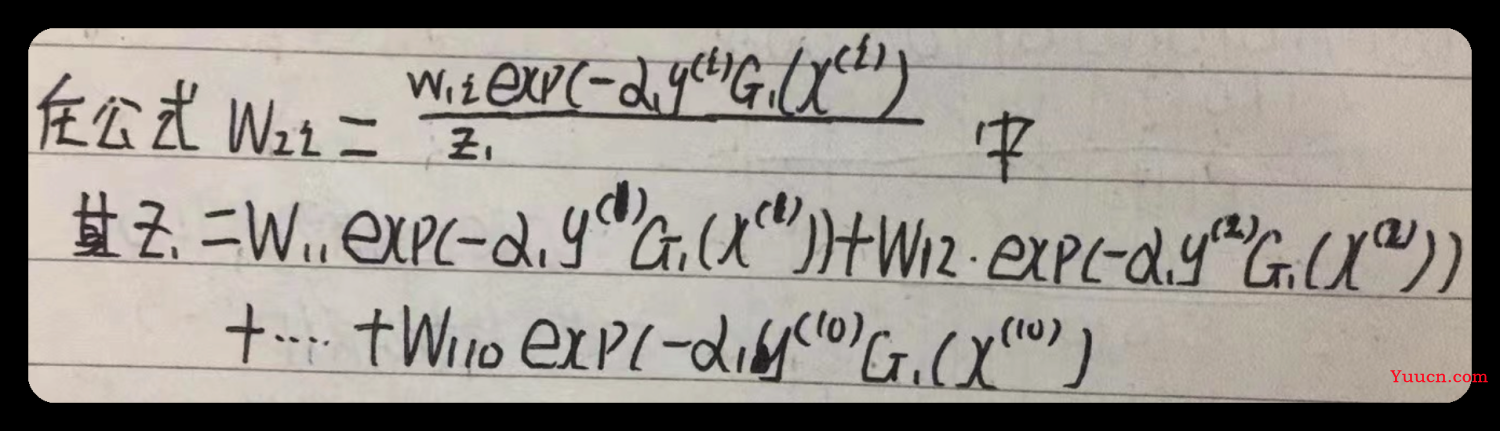 在公式 W₂ᵢ = \frac{W₁ᵢ exp(-α₁y⁽ⁱ⁾G₁(x⁽ⁱ⁾)}{Z₁} 中
其Z₁ = W₁₁ exp(-α₁y⁽¹⁾G₁(x⁽¹⁾))+W₁₂·exp(-α₁y⁽²⁾G₁(x⁽²⁾))
+····+W₁₁₀ exp(-α₁y⁽¹⁰⁾G₁(x⁽¹⁰⁾)
Yuucn.com